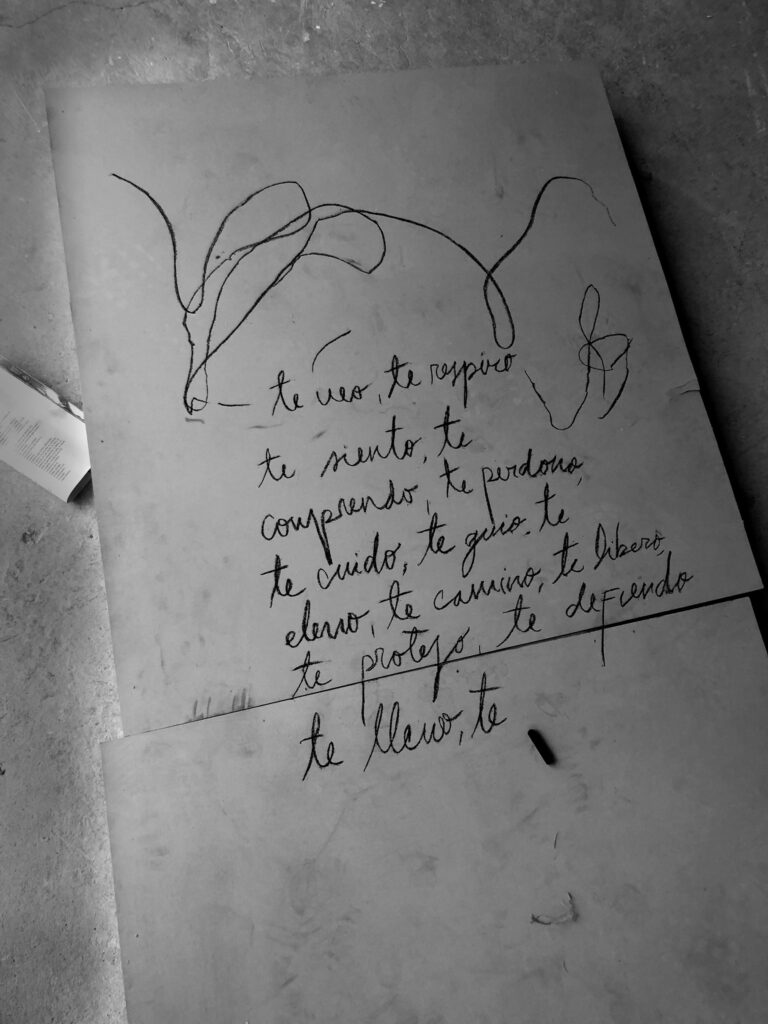 te veo, te respiro
te siento, te
comprendo, te perdono,
te cuido, te guio. te
elevo, te camino, te libero,
te protejo, te defiendo
te llevo, te